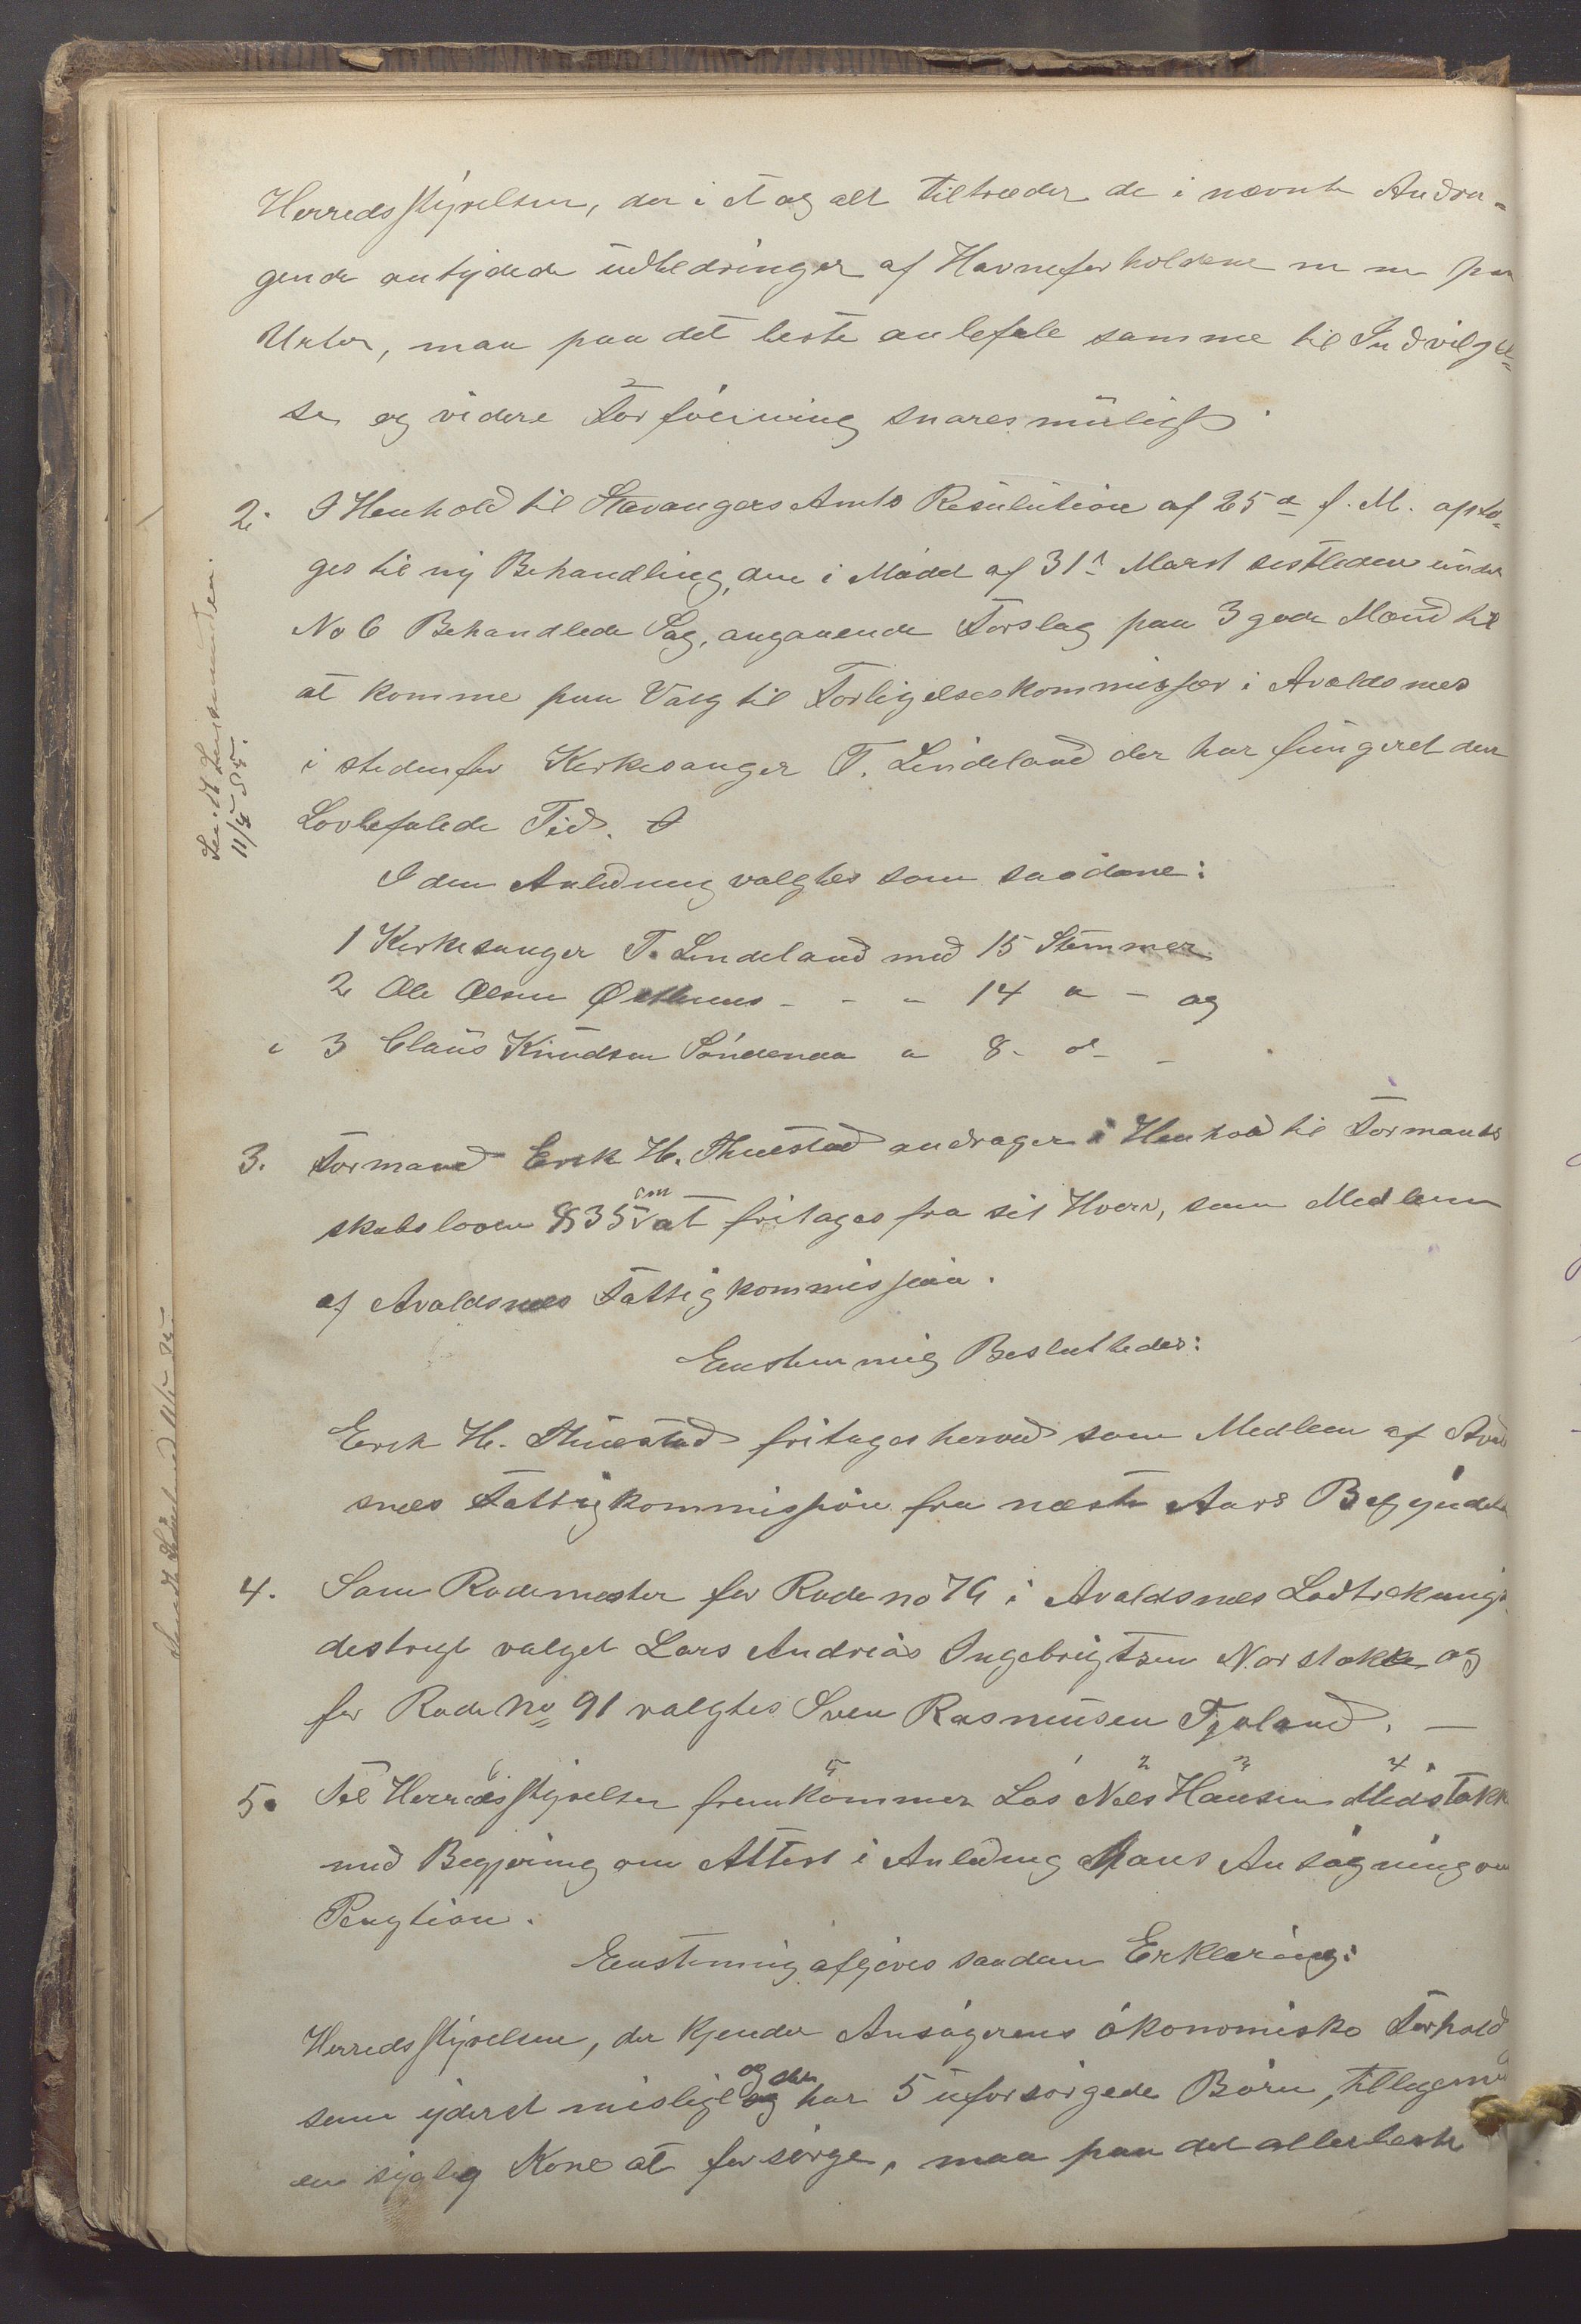 Herredsstyrelsen, der i et og alt tiltræder de i nævnte Andra-
gende antydede udbedringer af Havneforholdene m m paa
Utsire, maa paa det beste anbefale samme til Indvilgel-
se og videre Forføining snaresmuligt.
2. I Henhold til Stavangers Amts Resulution af 25de f. M. opto-
ges til ny Behandling, den i Mødet af 31te Marst sistleden under
No 6 Behandlede Sag, angaaende Forslag paa 3 gode Mænd til
at komme paa Valg til Forligelseskommissær i Avaldsnes
i stedenfor Kirkesanger T. Lindeland der har fungeret den
Lovbefalede Tid.
I den Anledning valgtes som saadane:
1 Kirkesanger T. Lindeland med 15 Stemmer
2 Ole Olsen Østhuus - - - 14 " - og
3 Claus Knudsen Søndenaa " 8 - " -
3. Formand Erik H. Thuestad andrager i Henhold til Formands
skabsloven § 35 om at fritages fra sit Hverv, som Medlem
af Avaldsnes Fattigkommission.
Enstemmig Besluttedes:
Erik H. Thuestad fritages herved som Medlem af Avald
snes Fattigkommission fra næste Aars Begyndelse
4. Som Rodemester for Rode no 76 i Avaldsnes Lodtreknings
destrigt valget Lars Andreas Ingebrigtsen Norstokke og
for Rode No 91 valgtes Sven Rasmusen Tjoland. —
5. Til Herredsstyrelsen fremkommer Los Nils Hansen Midstokke
med Begjæring om Attest i Anledning Hans Ansøgning om
Pengtion.
Enstemig afgives saadan Erklæring:
Herredsstyrelsen, der kjender Ansøgerens økonomiske Forhold
som yderst misligt og den har 5 uforsørgede Børn, tillegemed
en syglig Kone at forsørge, maa paa det allerbeste
Sendt Lensmanden.
11/5 85.